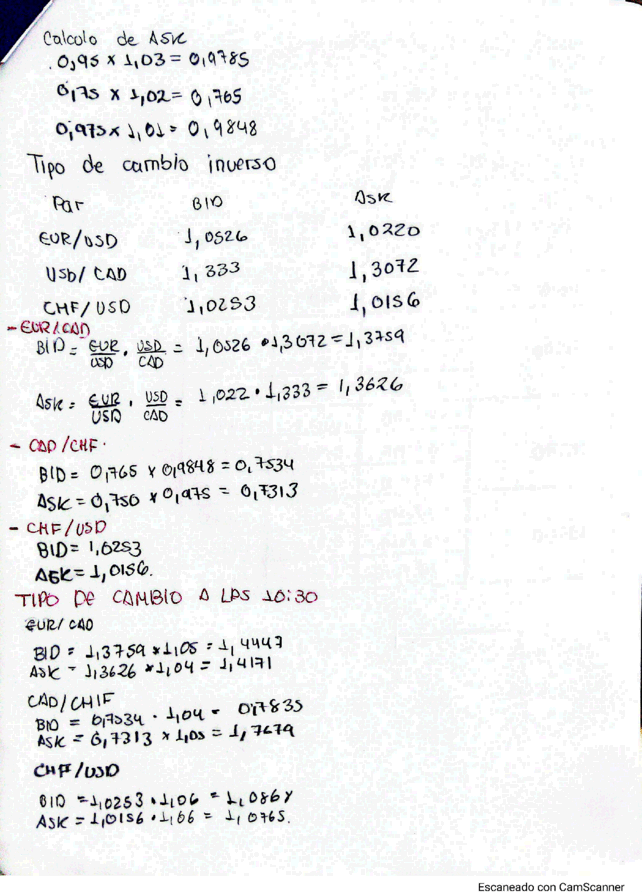 Calculo de ASK
0,95 x 1,03 = 0,9785
0,75 x 1,02 = 0,765
0,975 x 1,01 = 0,9848
Tipo de cambio inverso
Par BID ASK
EUR/USD 1,0526 1,0220
USD/CAD 1,333 1,3072
CHF/USD 1,0253 1,0156
- EUR/CAD
BID = EUR/USD . USD/CAD = 1,0526 • 1,3072 = 1,3759
ASK = EUR/USD . USD/CAD = 1,022 • 1,333 = 1,3626
- CAD/CHF.
BID = 0,765 x 0,9848 = 0,7534
ASK = 0,750 x 0,975 = 0,7313
- CHF/USD
BID = 1,0253
ASK = 1,0156.
TIPO DE CAMBIO A LAS 10:30
EUR/CAD
BID = 1,3759 x 1,05 = 1,4447
ASK = 1,3626 x 1,04 = 1,4171
CAD/CHF
BID = 0,7534 . 1,04 = 0,7835
ASK = 0,7313 x 1,05 = 1,7679
CHF/USD
BID = 1,0253 • 1,06 = 1,0868
ASK = 1,0156 • 1,06 = 1,0765.
Escaneado con CamScanner